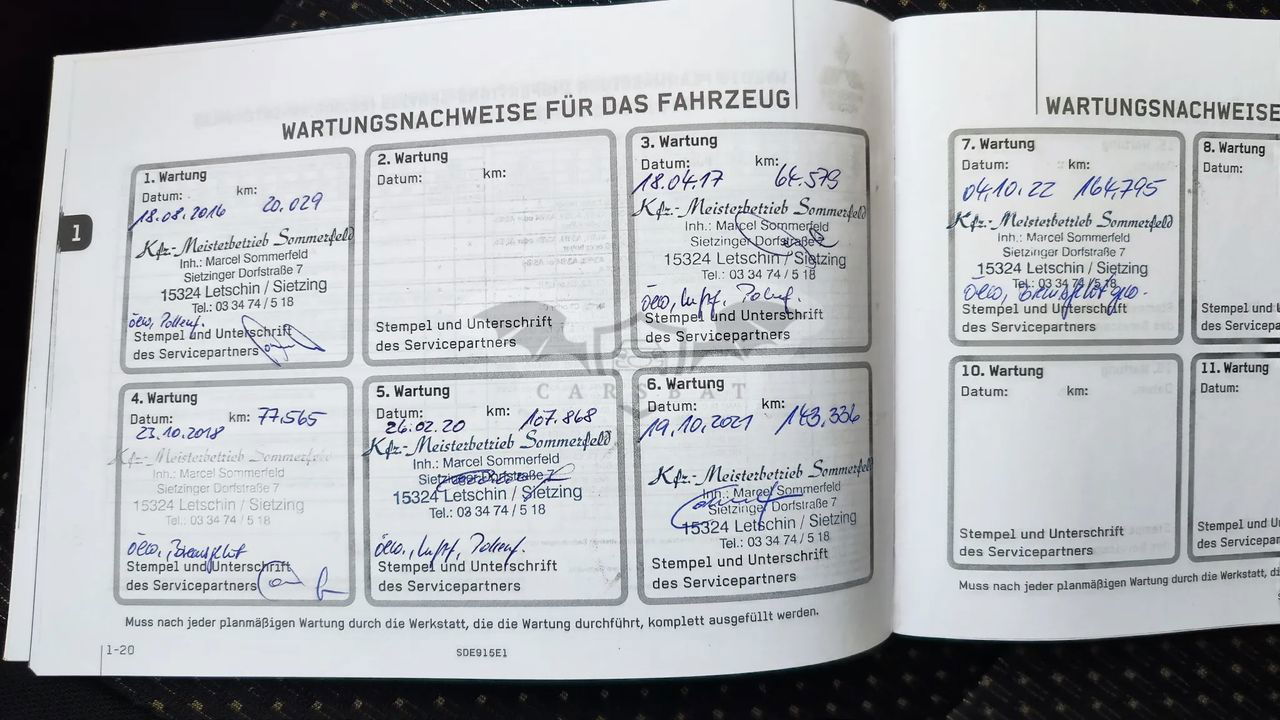 WARTUNGSNACHWEISE FÜR DAS FAHRZEUG
1
1. Wartung
Datum: km:
18.08.2016 20.029
Kfz.-Meisterbetrieb Sommerfeld
Inh.: Marcel Sommerfeld
Sietzinger Dorfstraße 7
15324 Letschin / Sietzing
Tel.: 03 34 74 / 5 18
Stempel und Unterschrift
des Servicepartners
2. Wartung
Datum: km:
Stempel und Unterschrift
des Servicepartners
3. Wartung
Datum: km:
18.04.17 64.579
Kfz.-Meisterbetrieb Sommerfeld
Inh.: Marcel Sommerfeld
Sietzinger Dorfstraße
15324 Letschin / Sietzing
Tel.: 03 34 74 / 5 18
Stempel und Unterschrift
des Servicepartners
CARSBAT
4. Wartung
Datum: km: 77.565
23.10.2018
Kfz.-Meisterbetrieb Sommerfeld
Inh.: Marcel Sommerfeld
Sietzinger Dorfstraße 7
15324 Letschin / Sietzing
Tel.: 03 34 74 / 5 18
Stempel und Unterschrift
des Servicepartners
5. Wartung
Datum: km:
26.02.20 107.868
Kfz.-Meisterbetrieb Sommerfeld
Inh.: Marcel Sommerfeld
Sietzinger Dorfstraße 7
15324 Letschin / Sietzing
Tel.: 03 34 74 / 5 18
Stempel und Unterschrift
des Servicepartners
6. Wartung
Datum: km:
19.10.2021 143.336
Kfz.-Meisterbetrieb Sommerfeld
Inh.: Marcel Sommerfeld
Sietzinger Dorfstraße 7
15324 Letschin / Sietzing
Tel.: 03 34 74 / 5 18
Stempel und Unterschrift
des Servicepartners
Muss nach jeder planmäßigen Wartung durch die Werkstatt, die die Wartung durchführt, komplett ausgefüllt werden.
1-20
SDE915E1
WARTUNGSNACHWEISE
7. Wartung
Datum: km:
04.10.22 164.795
Kfz.-Meisterbetrieb Sommerfeld
Inh.: Marcel Sommerfeld
Sietzinger Dorfstraße 7
15324 Letschin / Sietzing
Tel.: 03 34 74 / 5 18
Stempel und Unterschrift
des Servicepartners
8. Wartung
Datum:
Stempel und
des Servicep
10. Wartung
Datum: km:
Stempel und Unterschrift
des Servicepartners
11. Wartung
Datum:
Stempel und Un
des Servicepart
Muss nach jeder planmäßigen Wartung durch die Werkstatt, di